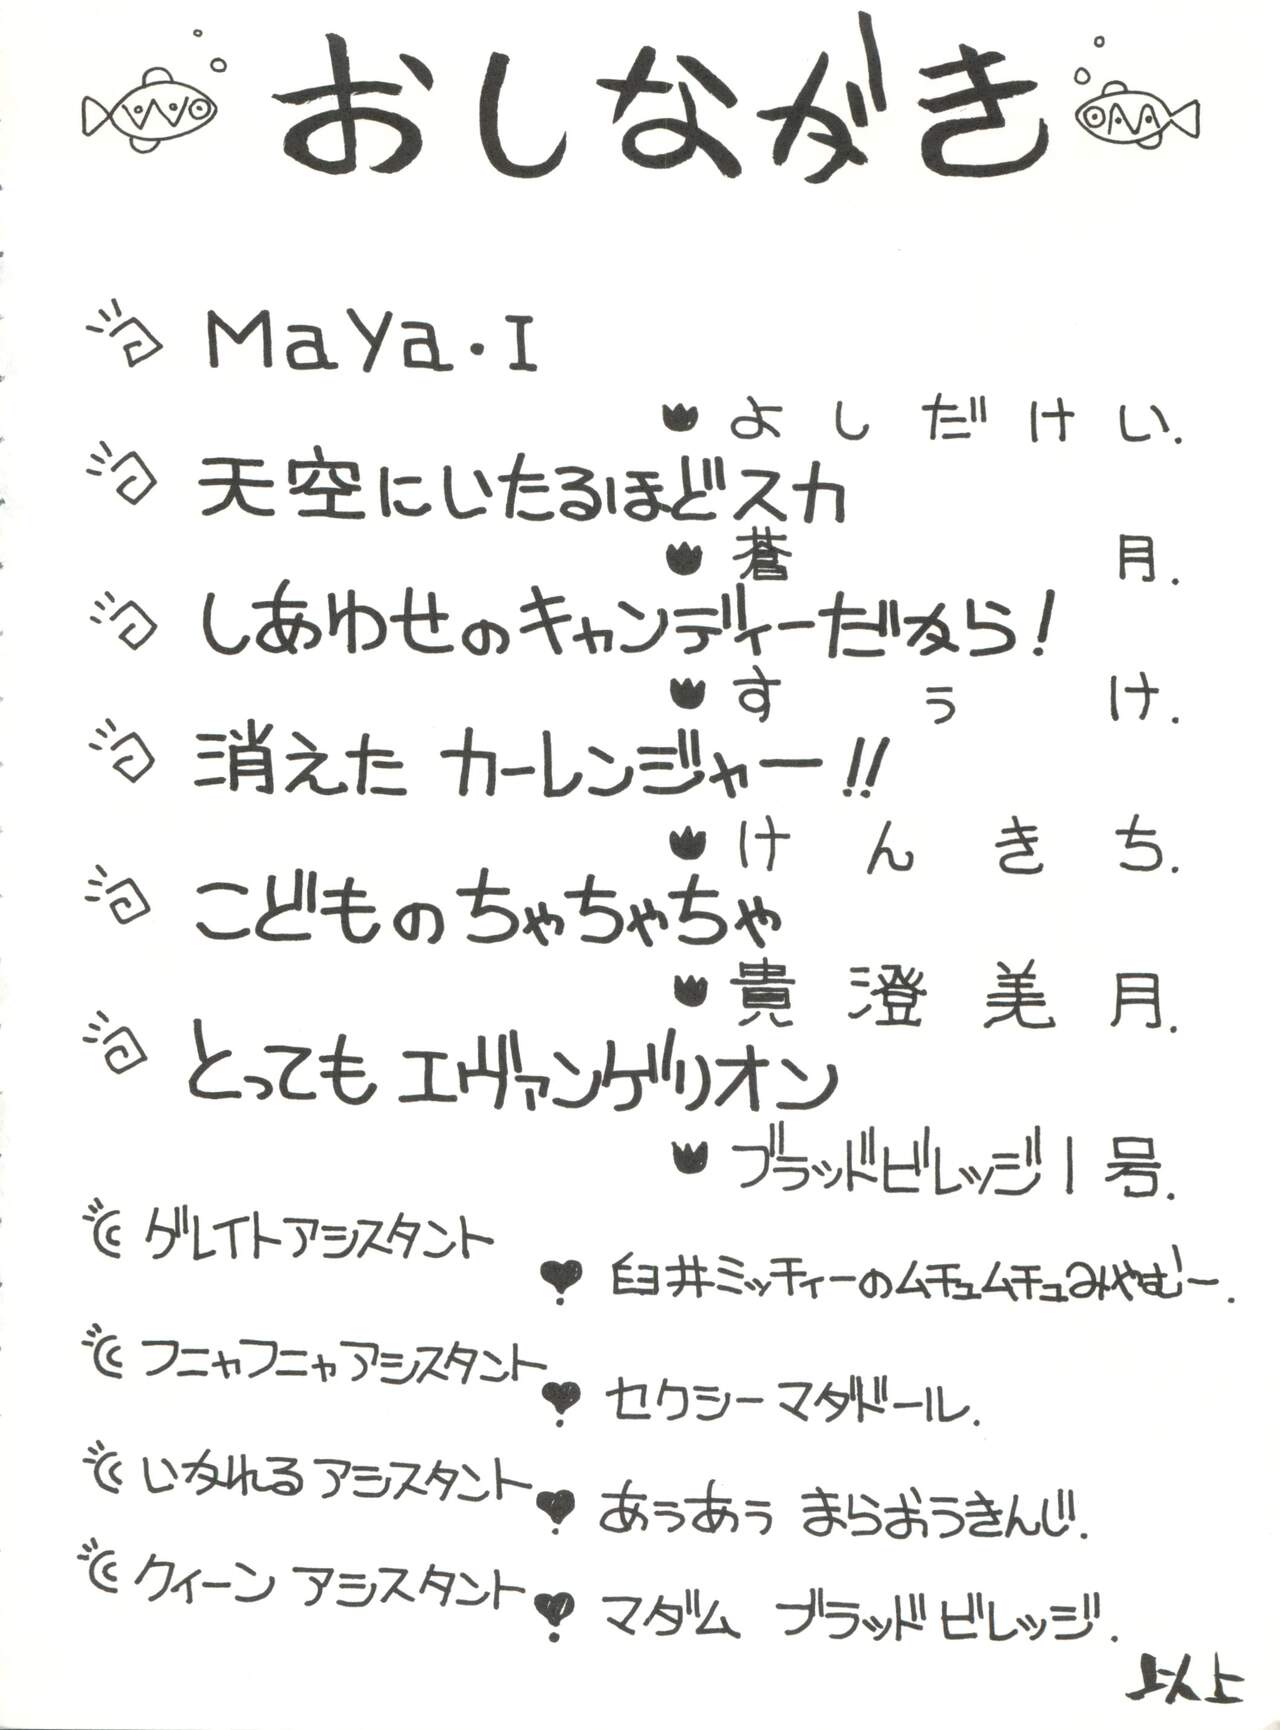 おしながき
MaYa・I
よしだけい.
天空にいたるほどスカ
蒼月.
しあわせのキャンディーだなら!
すぅけ.
消えた カーレンジャー!!
けんきち.
こどものちゃちゃちゃ
貴澄美月.
とっても エヴァンゲリオン
ブラッドビレッジ1号.
グレイトアシスタント
臼井ミッティーのムチュムチュみやむー.
フニャフニャアシスタント
セクシーマタドール.
いかれる アシスタント
あぅあぅ まらおうきんじ.
クィーン アシスタント
マダム ブラッドビレッジ.
以上